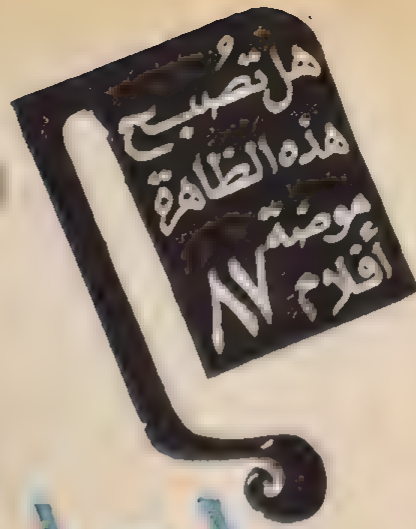 هل تصُبح
هذه الظاهرة
موضة
أفلام ٨٧